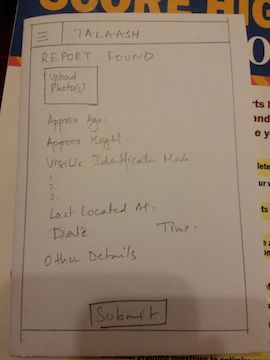 SCORE HIG
TALAASH
REPORT FOUND
Upload
Photo(s)
Approx Age:
Approx Height
Visible Identification Mark
1.
2.
3.
Last Located At:
Date: Time:
Other Details
Submit